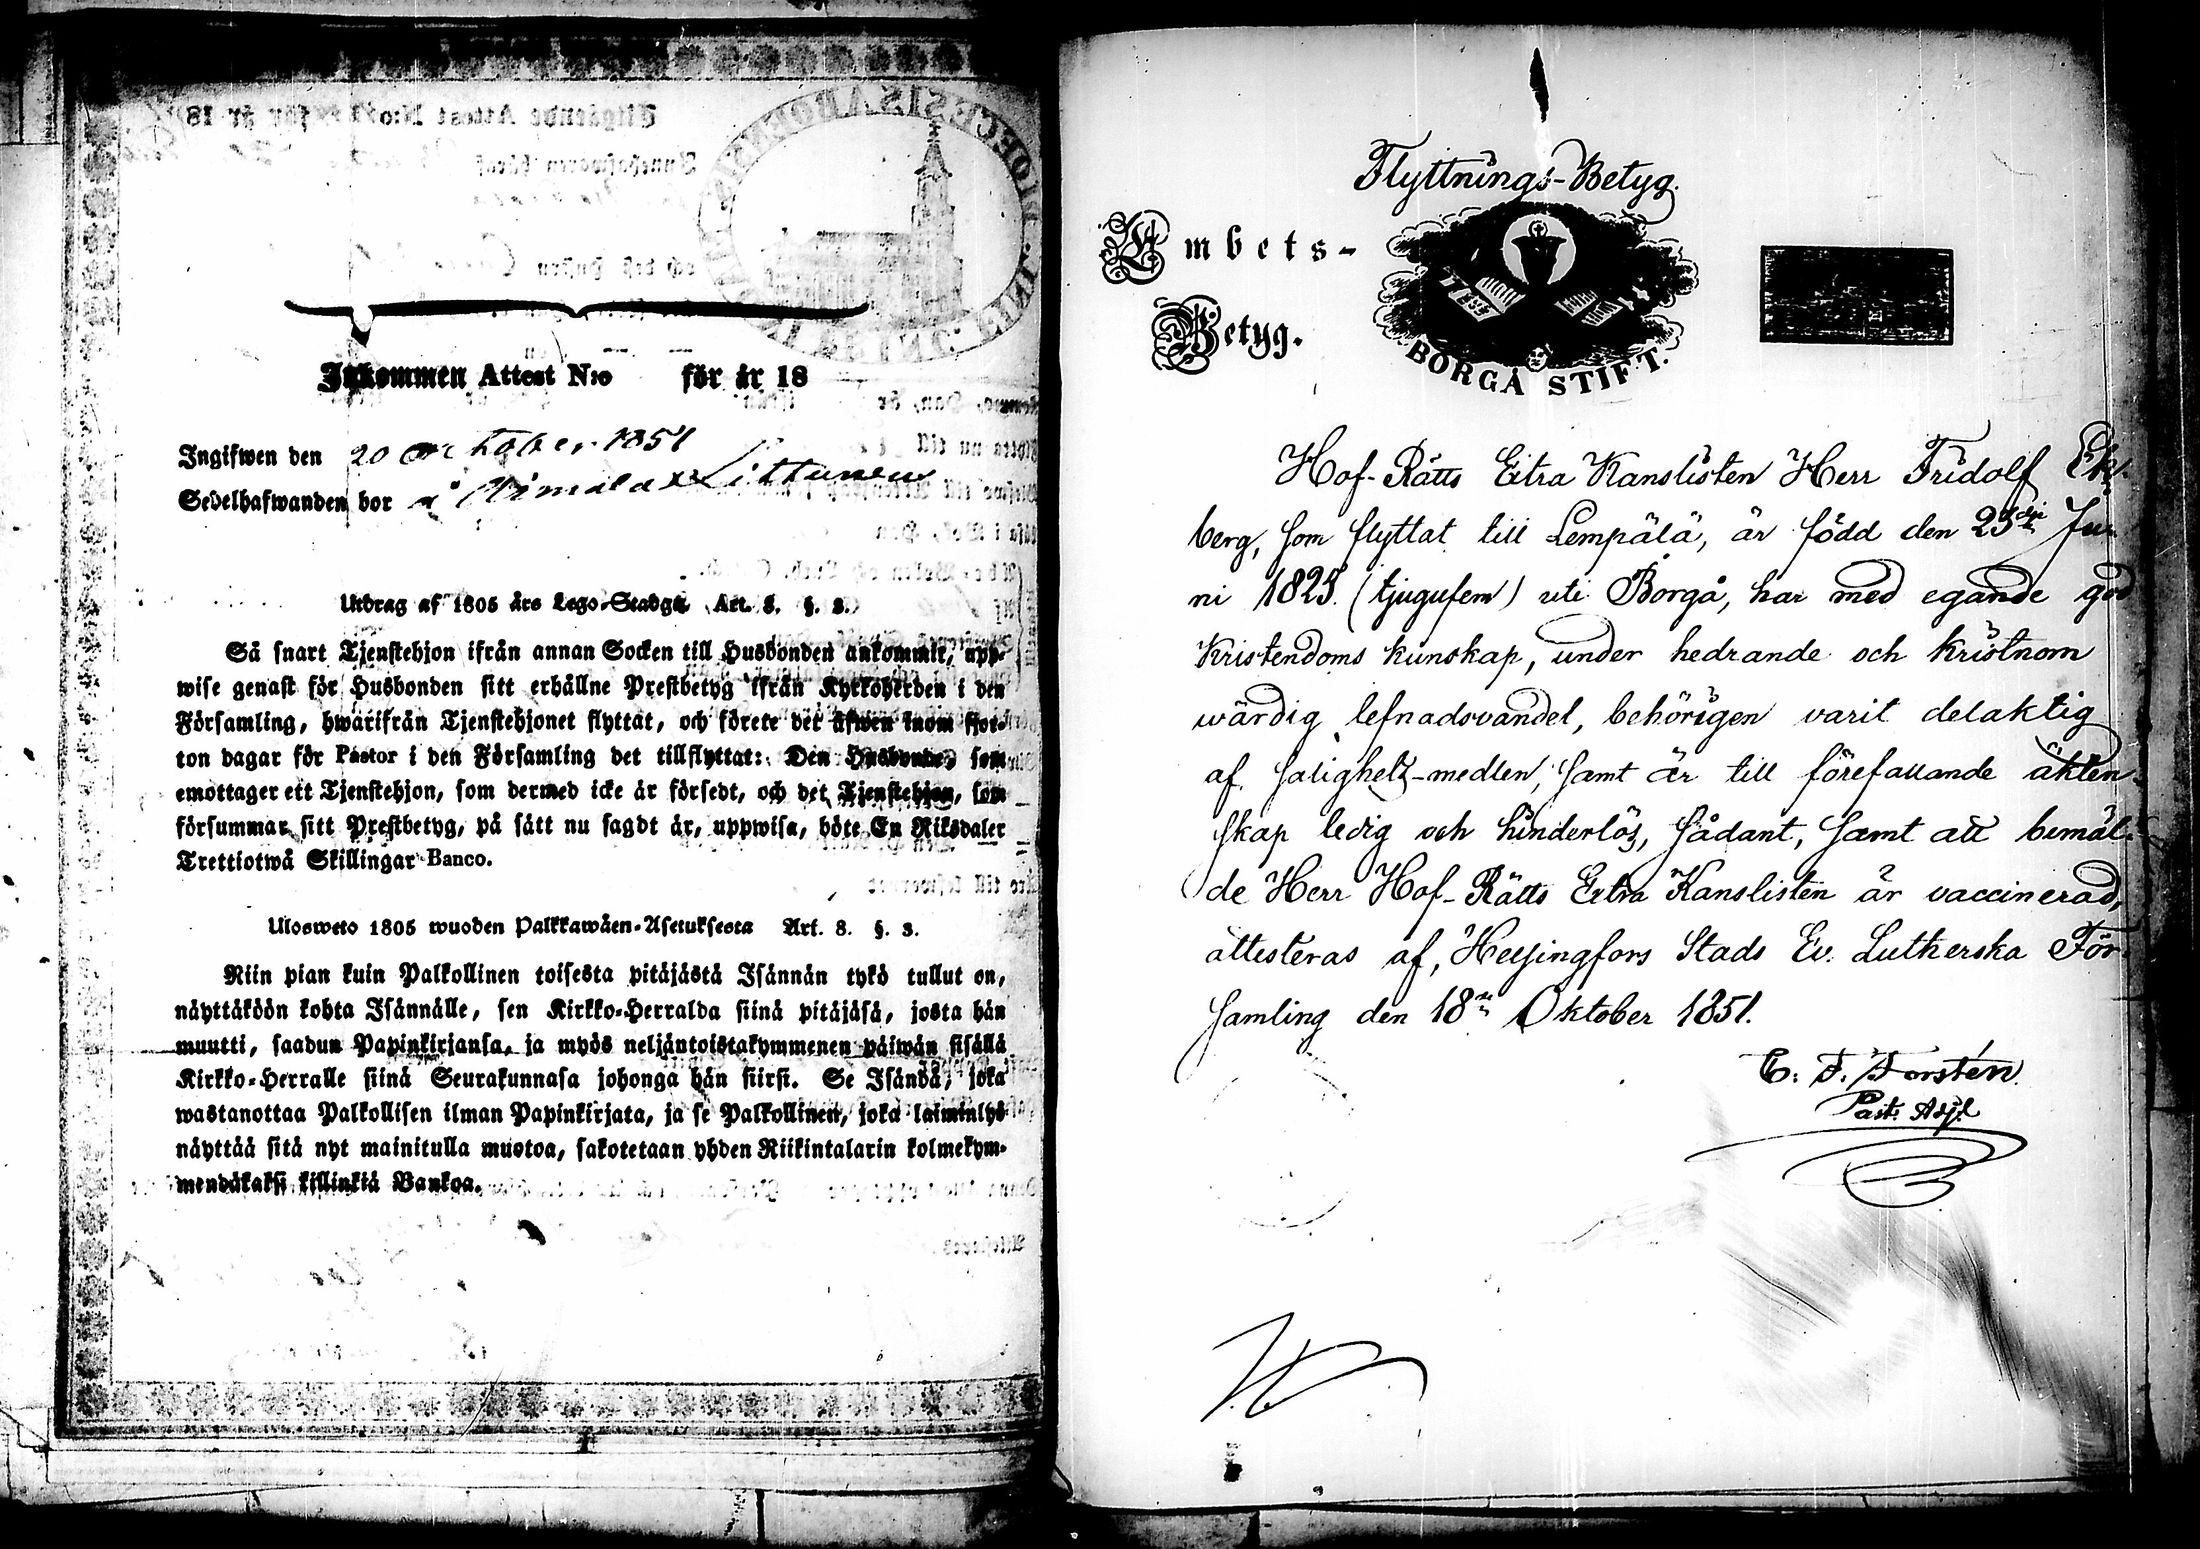 Inkommen Attest N:o för år 18
Ingifwen den 20 october 1851
Sedelhafwanden bor å
Utdrag af 1805 års Lego-Stadga Art. 8. §. 3.
Så snart Tjenstehjon ifrån annan Socken till Husbonden ankommit, upp-
wise genast för Husbonden sitt erhållne Prestbetyg ifrån Kyrkoherden i den
Församling, hwarifrån Tjenstehjonet flyttat, och förete det äfwen inom fjor-
ton dagar för Pastor i den Församling det tillflyttat: Den Husbonde, som
emottager ett Tjenstehjon, som dermed icke är försedt, och det Tjenstehjon, som
försummar sitt Prestbetyg, på sätt nu sagdt är, uppwisa, böte En Riksdaler
Trettiotwå Skillingar Banco.
Ulosweto 1805 wuoden Palkkawäen-Asetuksesta Art. 8. §. 3.
Niin pian kuin Palkollinen toisesta pitäjästä Isännän tykö tullut on,
näyttäköön kohta Isännälle, sen Kirkko-Herralda siinä pitäjäsä, josta hän
muutti, saadun Papinkirjansa, ja myös neljäntoistakymmenen päiwän sisällä
Kirkko-Herralle siinä Seurakunnasa johonga hän siirsi. Se Isändä, joka
wastanottaa Palkollisen ilman Papinkirjata, ja se Palkollinen, joka laiminlyö
näyttää sitä nyt mainitulla muotoa, sakotetaan yhden Riikintalarin kolmekym-
mendäkaksi killinkiä Bankoa.
Flyttnings-Betyg.
Embets-
Betyg.
BORGÅ STIFT.
Hof-Rätts Extra Kanslisten Herr Fridolf Ek-
berg, som flyttat till Lempälä, är född den 25 Ju-
ni 1825 (tjugufem) uti Borgå, har med egande god
Kristendoms kunskap, under hedrande och kristnom
wärdig lefnadsvandel, behörigen varit delaktig
af salighetz-medlen, samt är till förefallande äkten-
skap ledig och hinderlös, sådant, samt att bemäl-
de Herr Hof-Rätts Extra Kanslisten är vaccinerad,
attesteras af, Helsingfors Stads Ev. Lutherska För-
samling den 18 Oktober 1851.
C. F. Forstén.
Past. Adj.